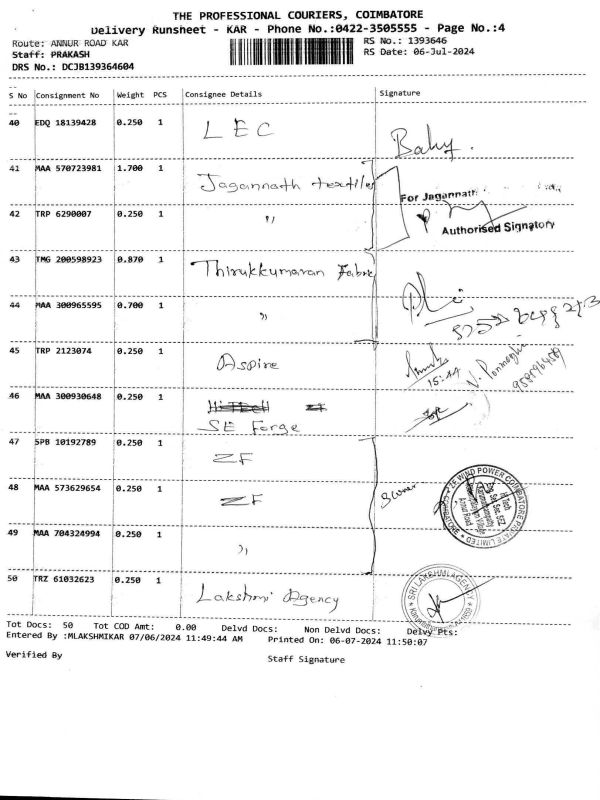 THE PROFESSIONAL COURIERS, COIMBATORE
Delivery Runsheet - KAR - Phone No.:0422-3505555 - Page No.:4
Route: ANNUR ROAD KAR
RS No.: 1393646
Staff: PRAKASH
RS Date: 06-Jul-2024
DRS No.: DCJB139364604
S No Consignment No Weight PCS Consignee Details Signature
40 EDQ 18139428 0.250 1 LEC Baky.
41 MAA 570723981 1.700 1 Jagannath textiles
For Jagannath
42 TRP 6290007 0.250 1 "
Authorised Signatory
43 TMG 200598923 0.870 1 Thirukkumaran Fabric
44 MAA 300965595 0.700 1 "
45 TRP 2123074 0.250 1 Aspire 15:44
46 MAA 300930648 0.250 1
SE Forge
47 SPB 10192789 0.250 1 ZF
48 MAA 573629654 0.250 1 ZF
ZF WIND POWER COIMBATORE PRIVATE LIMITED
49 MAA 704324994 0.250 1 "
50 TRZ 61032623 0.250 1 Lakshmi Agency
SRI LAKSHMI AGENCY
Tot Docs: 50 Tot COD Amt: 0.00 Delvd Docs: Non Delvd Docs: Delvy Pts:
Entered By :MLAKSHMIKAR 07/06/2024 11:49:44 AM Printed On: 06-07-2024 11:50:07
Verified By
Staff Signature